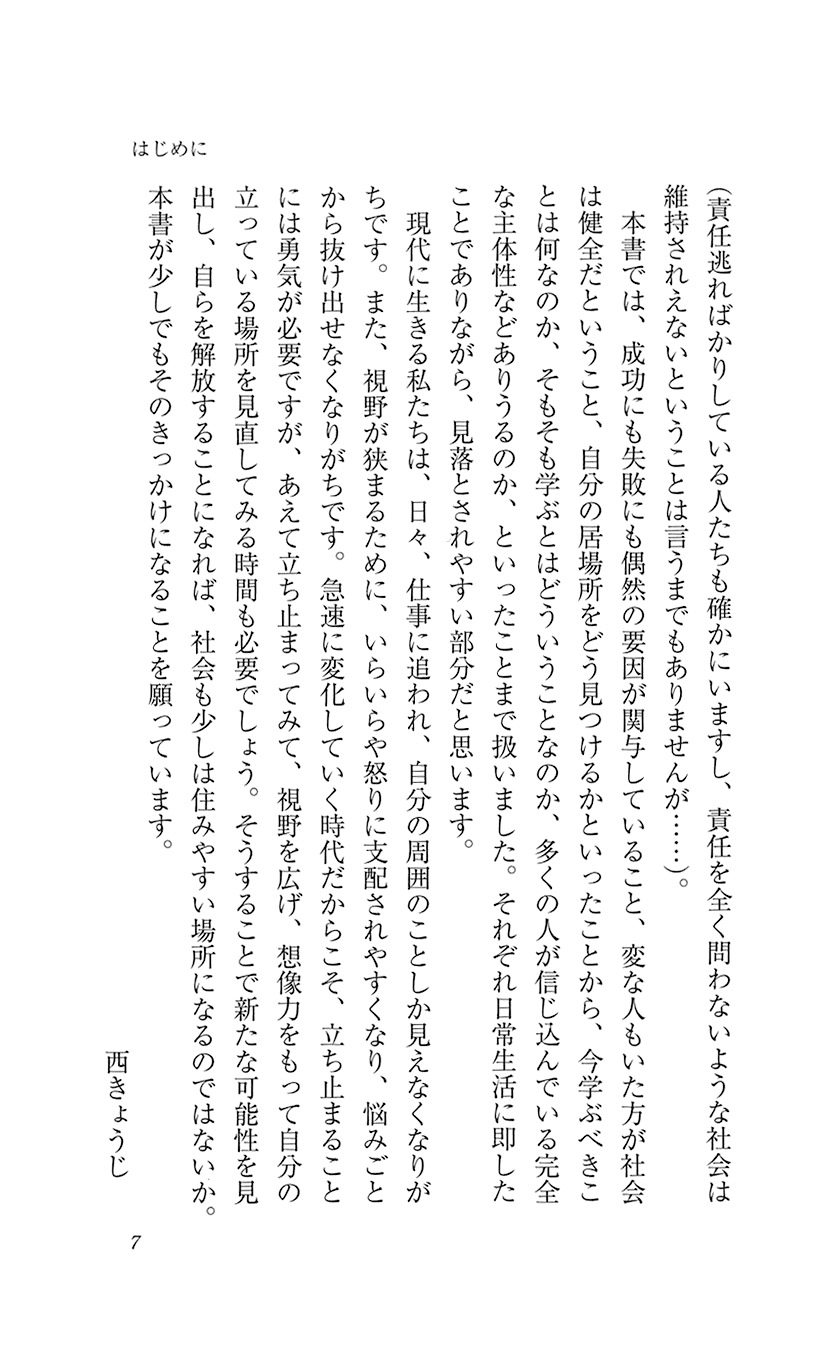 はじめに
(責任逃ればかりしている人たちも確かにいますし、責任を全く問わないような社会は
維持されえないということは言うまでもありませんが……)。
本書では、成功にも失敗にも偶然の要因が関与していること、変な人もいた方が社会
は健全だということ、自分の居場所をどう見つけるかといったことから、今学ぶべきこ
とは何なのか、そもそも学ぶとはどういうことなのか、多くの人が信じ込んでいる完全
な主体性などありうるのか、といったことまで扱いました。それぞれ日常生活に即した
ことでありながら、見落とされやすい部分だと思います。
現代に生きる私たちは、日々、仕事に追われ、自分の周囲のことしか見えなくなりが
ちです。また、視野が狭まるために、いらいらや怒りに支配されやすくなり、悩みごと
から抜け出せなくなりがちです。急速に変化していく時代だからこそ、立ち止まること
には勇気が必要ですが、あえて立ち止まってみて、視野を広げ、想像力をもって自分の
立っている場所を見直してみる時間も必要でしょう。そうすることで新たな可能性を見
出し、自らを解放することになれば、社会も少しは住みやすい場所になるのではないか。
本書が少しでもそのきっかけになることを願っています。
西きょうじ
7